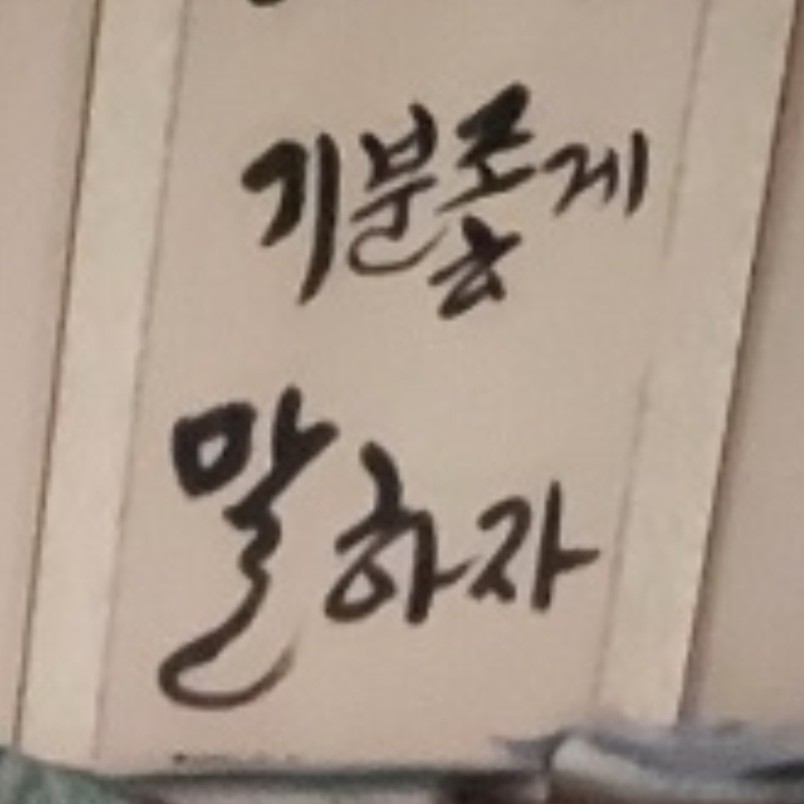 기분좋게
말하자